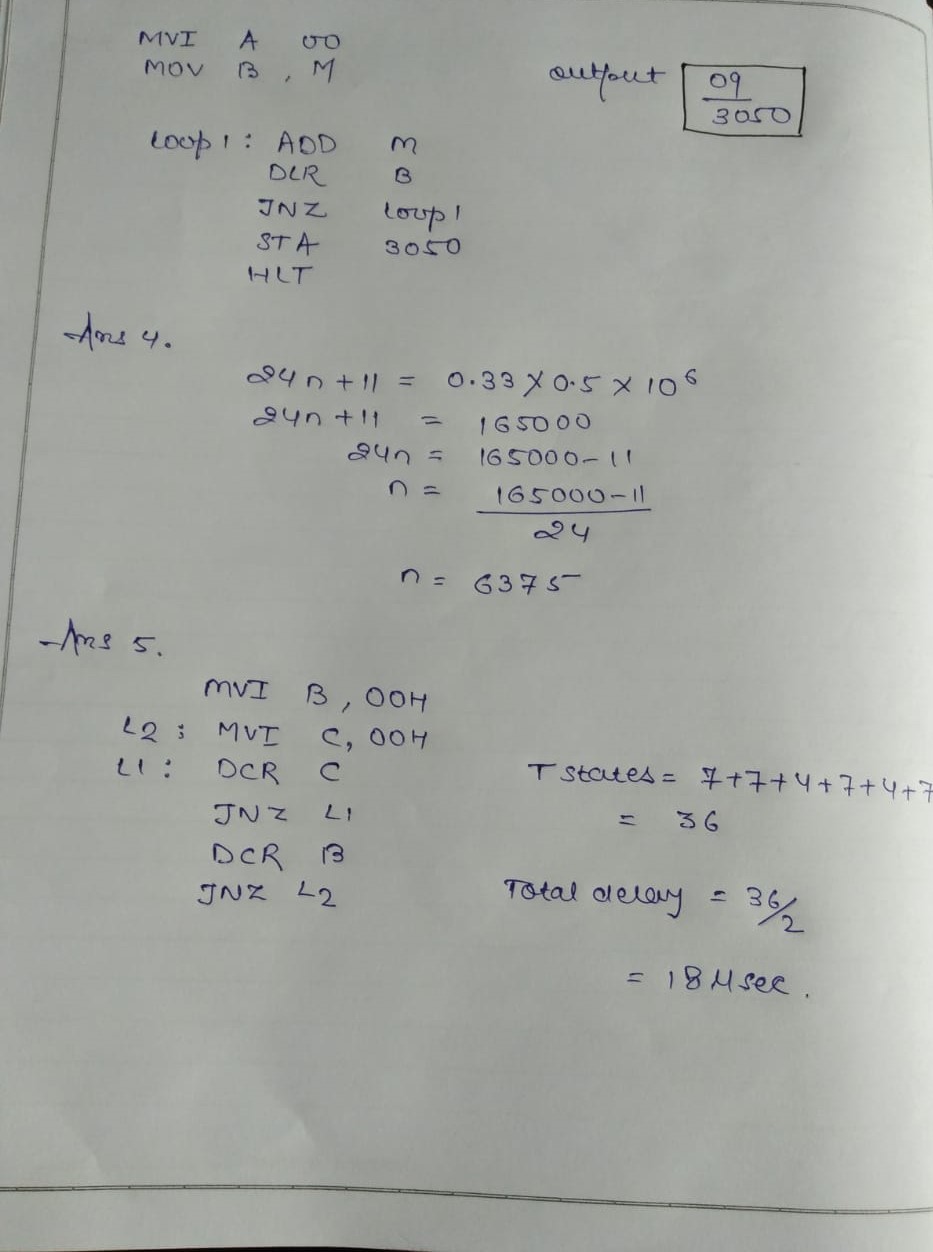 MVI A 00
MOV B, M
output 09
3050
Loop1: ADD M
DCR B
JNZ Loop1
STA 3050
HLT
Ans 4.
24n + 11 = 0.33 X 0.5 X 10⁶
24n + 11 = 165000
24n = 165000-11
n = 165000-11
24
n = 6375
Ans 5.
MVI B, 00H
L2: MVI C, 00H
L1: DCR C
JNZ L1
DCR B
JNZ L2
T states = 7+7+4+7+4+7
= 36
Total delay = 36/2
= 18 Msec.